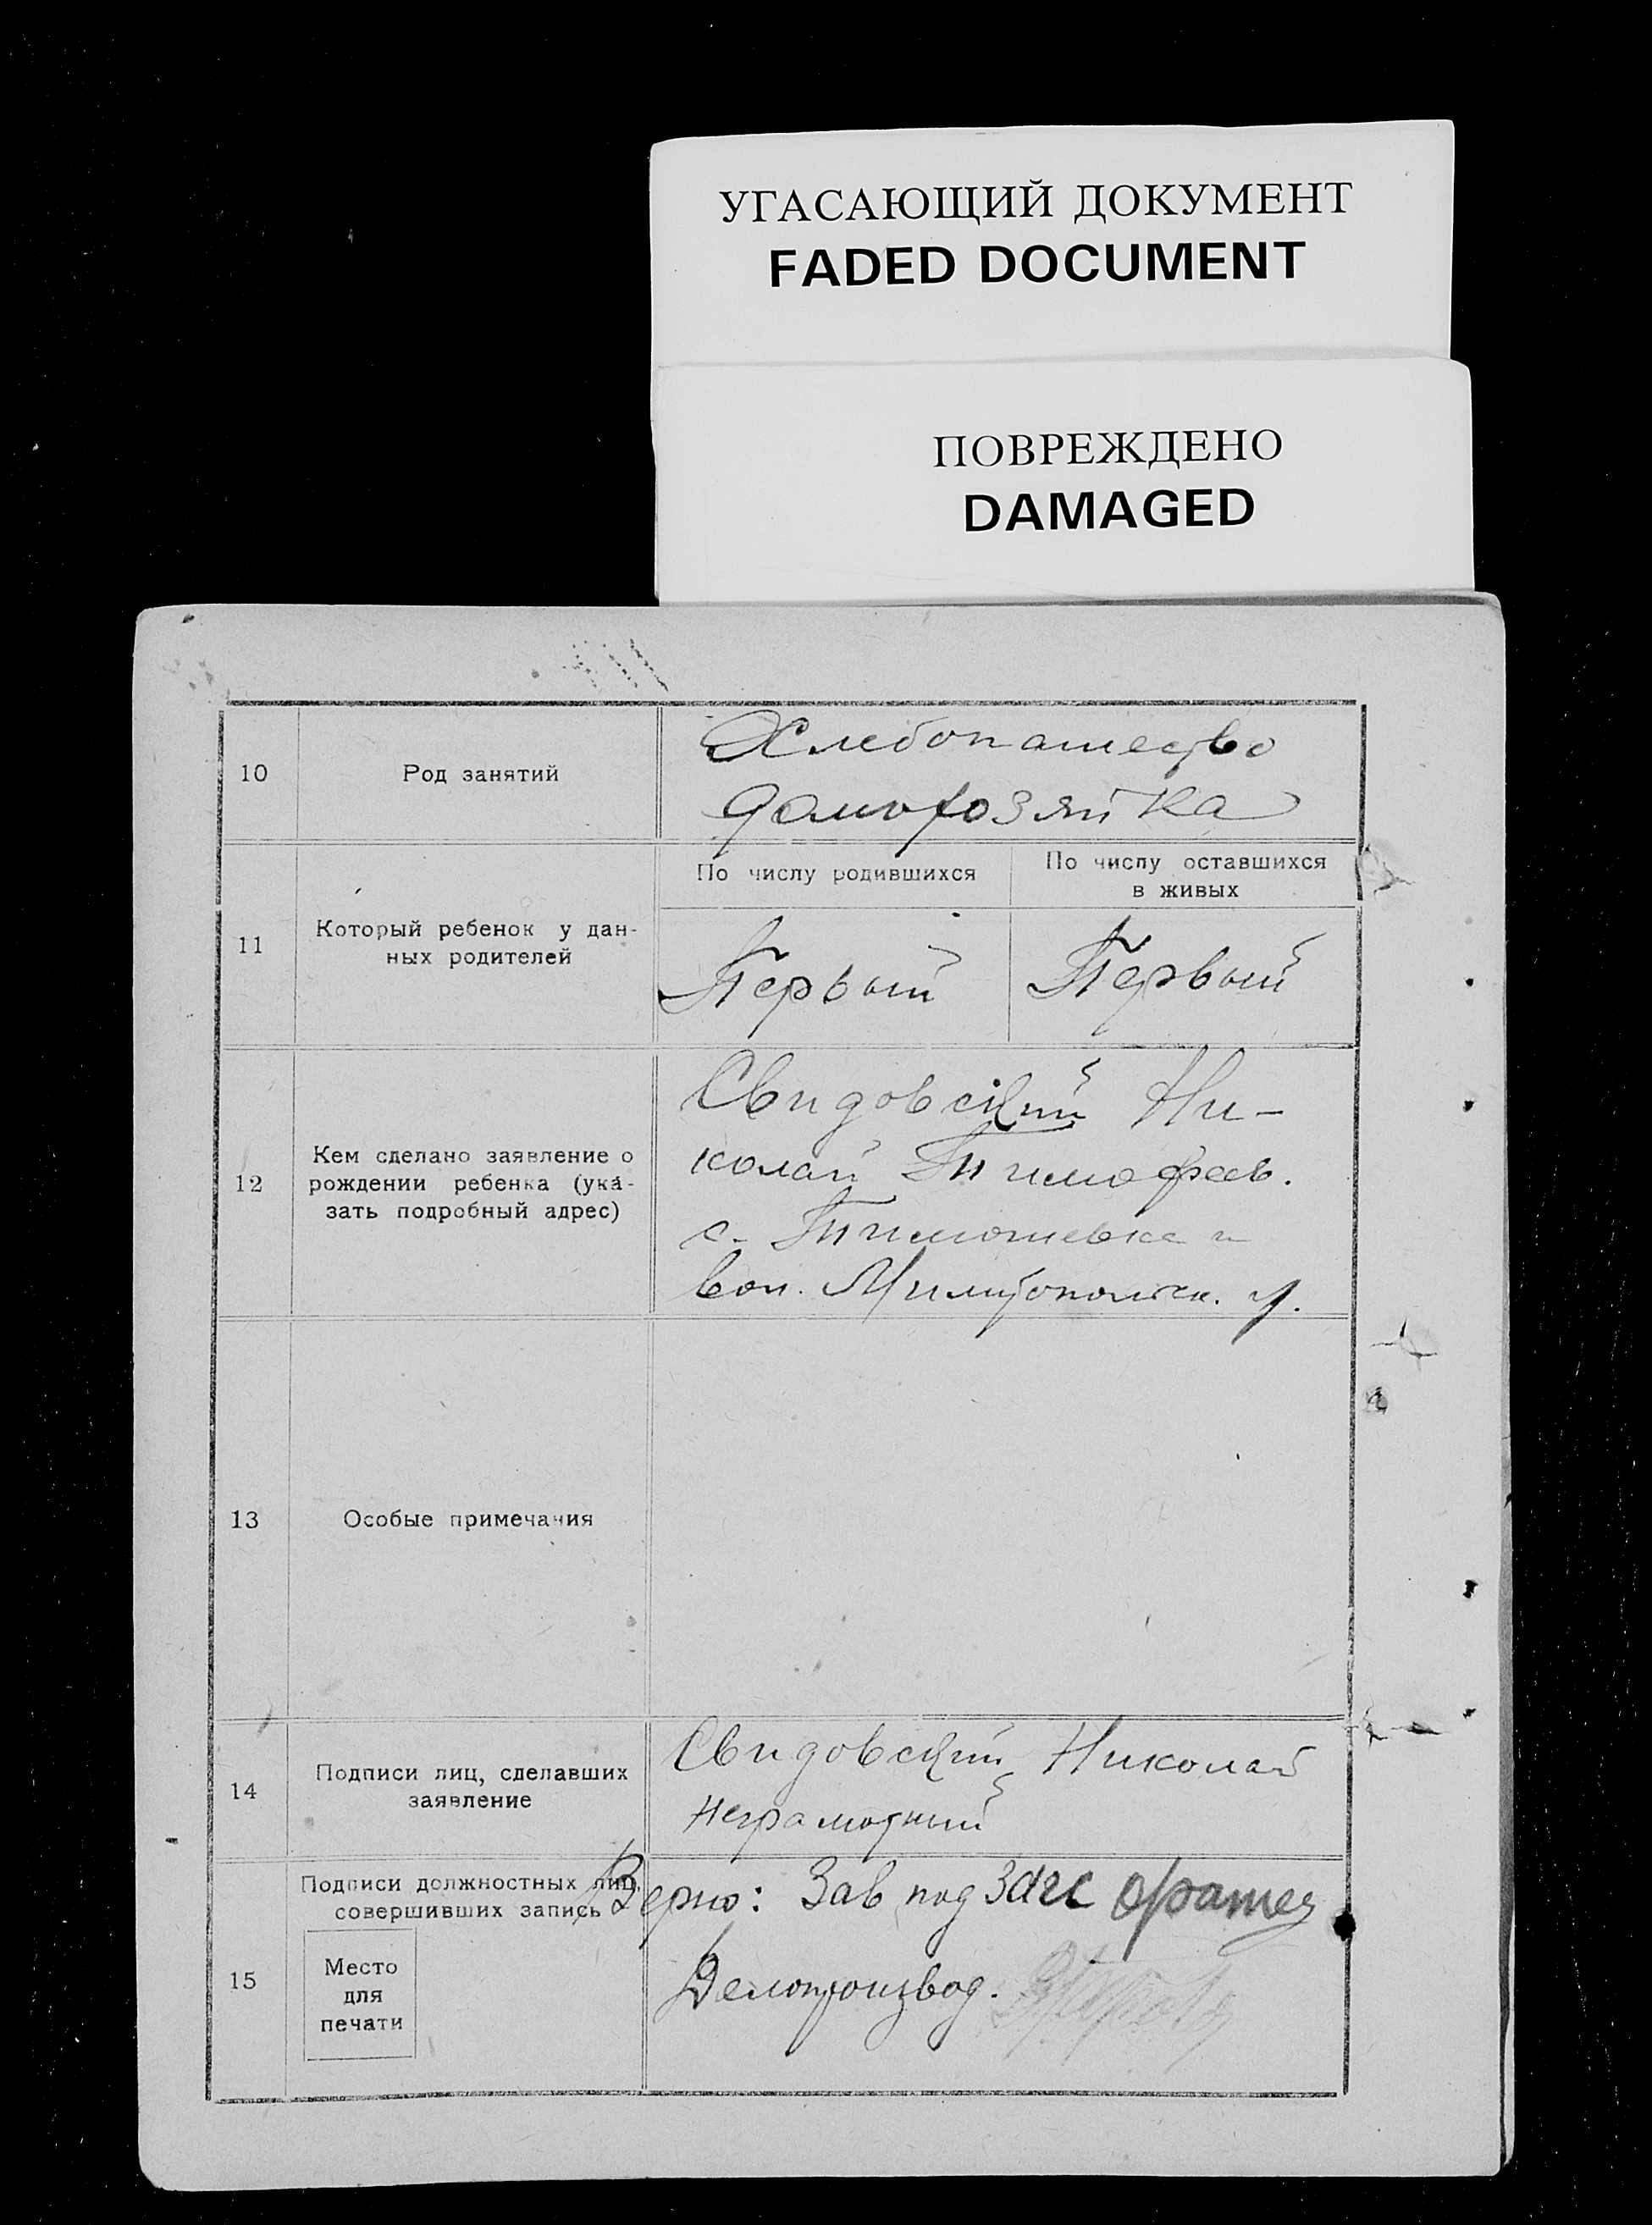 УГАСАЮЩИЙ ДОКУМЕНТ
FADED DOCUMENT
ПОВРЕЖДЕНО
DAMAGED
10
Род занятий
Хлебопашество
домохозяйка
11
Который ребенок у дан-
ных родителей
По числу родившихся
По числу оставшихся
в живых
Первый
Первый
12
Кем сделано заявление о
рождении ребенка (ука-
зать подробный адрес)
Свидовский Ни-
колай Тимофеев.
с. Тимошевка и
вол. Милитопольск. у.
13
Особые примечания
14
Подписи лиц, сделавших
заявление
Свидовский Николай
неграмотный
15
Подписи должностных лиц,
совершивших запись
Место
для
печати
Верно: Зав под
Делопроизвод.